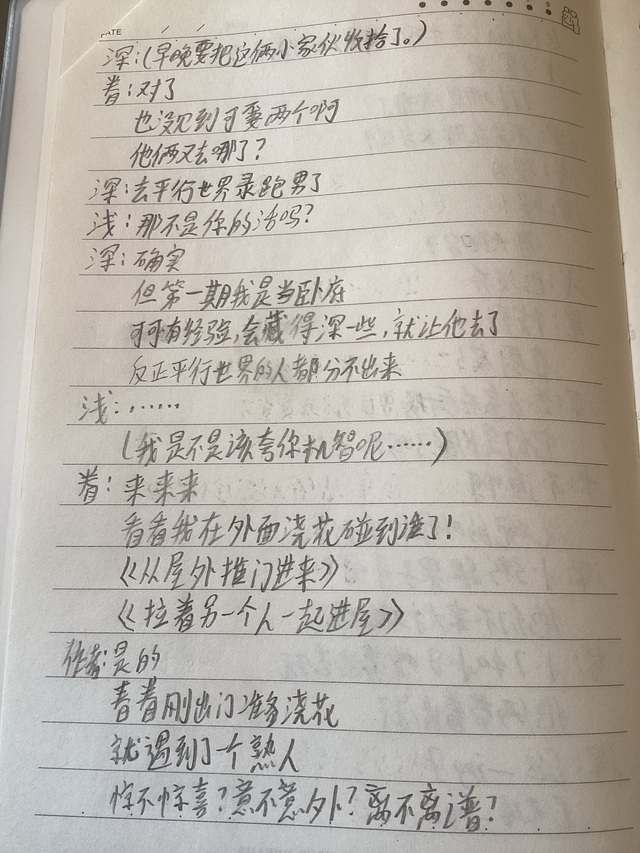 DATE
深:(早晚要把这俩小家伙收拾了。)
眷:对了
也没见到可要两个啊
他俩又去哪了?
深:去平行世界录跑男了
浅:那不是你的活吗?
深:确实
但第一期我是当卧底
可可有经验,会藏得深一些,就让他去了
反正平行世界的人都分不出来
浅:……
(我是不是该夸你机智呢……)
眷:来来来
看看我在外面浇花碰到谁了!
《从屋外推门进来》
《拉着另一个人一起进屋》
作者:是的
眷眷刚出门准备浇花
就遇到了一个熟人
惊不惊喜?意不意外?离不离谱?